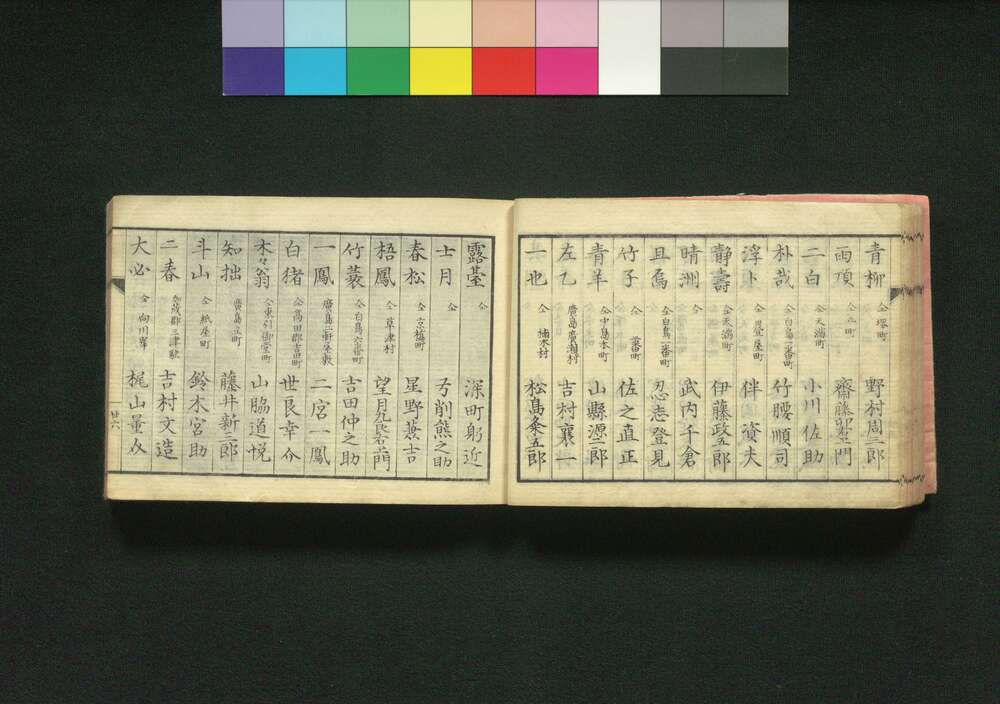 青柳 仝堺町 野村周三郎
雨頂 仝 町 齋藤 門
二白 仝天満町 小川佐助
朴哉 仝白島二番町 竹腰順司
浮木 仝疊屋町 伴資夫
静壽 仝天満町 伊藤政五郎
晴洲 仝 武内千倉
且烏 仝白島一番町 忍志登見
竹子 仝 番町 佐之直正
青羊 仝中島本町 山縣源二郎
左乙 廣島廣瀬村 吉村襄一
一也 仝楠木村 松島粂五郎
露臺 仝 深町躬近
士月 仝 弓削熊之助
春松 仝京橋町 星野燕吉
梧鳳 仝草津村 望月 右エ門
竹蓑 仝白島六番町 吉田仲之助
一鳳 廣島二軒茶敷 二宮一鳳
白猪 仝高田郡吉田町 世良幸介
木々翁 仝東引御堂町 山脇道悦
知拙 廣島立町 藤井新三郎
斗山 仝紙屋町 鈴木宮助
二春 加茂郡三津駅 吉村文造
大必 仝向川岸 梶山量
廿六